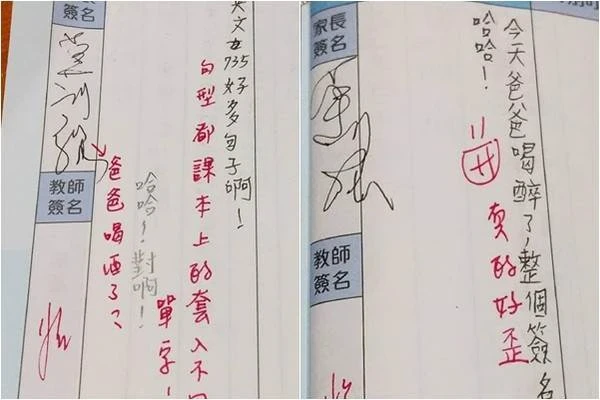 735好多句子啊!
句型都課本上的套入不
單字!
哈哈~對啊!
爸爸喝酒了?
簽名
教師
簽名
今天爸爸喝醉了,整個簽名
哈哈!
真的好歪
家長
簽名
教師
簽名